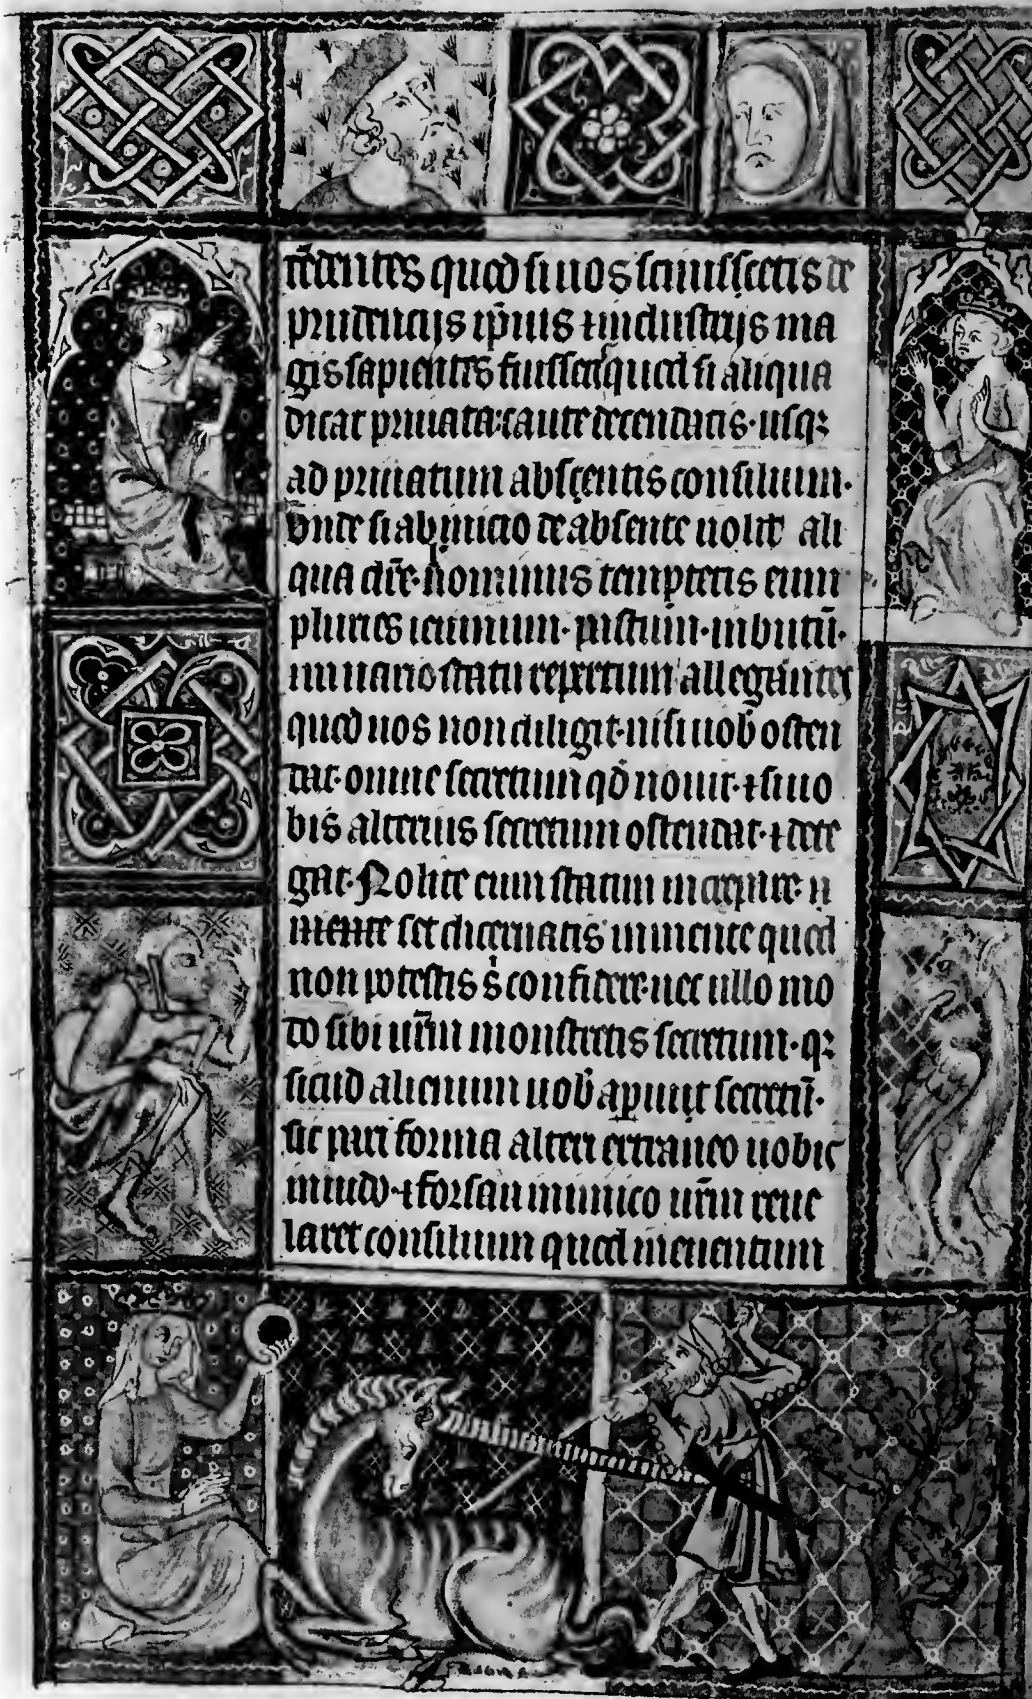 credentes quod si uos sciuissetis de
prudencijs ip̄ius ⁊ industrijs ma
gis sapientes fuissetꝭ quod si aliqua
dicat priuata: caute detendatis· usqꝫ
ad priuatum absentis consilium·
vnde si ab inicio de absente nolit ali
qua dir̄e· hominius temptetis eum
pluries ieiunum· pastum· inbutū·
in uario statu repertum allegantes
quod uos non diligit· nisi uob̄ osten
dat· omne secretum qd̄ nouit· ⁊ si uo
bis alterius secretum ostendat· ⁊ dete
gat· Nolite eum statim increpare· ii
mente set dicernatis in mente quod
non potestis s̄ confidere· nec ullo mo
do sibi ur̄m monstretis secretum· qꝫ
sicud alienum uob̄ aperuit secretū·
sic pari forma alteri extraneo uobis
inuido· ⁊ forsan inimico ur̄m reue
laret consilium quod in euentum